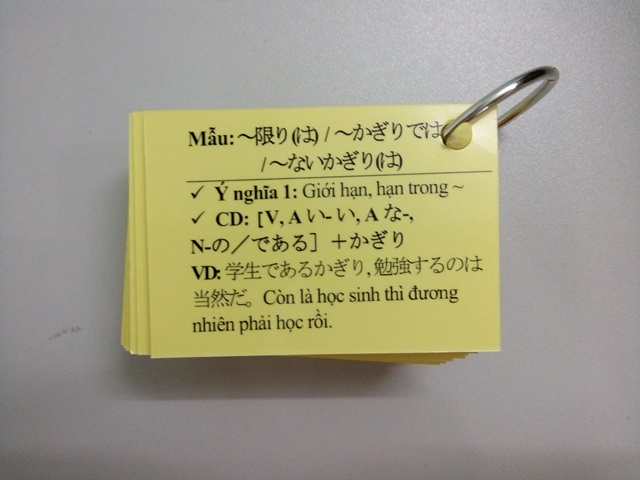 Mẫu: ～限り(は) / ～かぎりでは
/ ～ないかぎり(は)
✓ Ý nghĩa 1: Giới hạn, hạn trong ~
✓ CD: [V, A い- い, A な-,
N-の／である］＋かぎり
VD: 学生であるかぎり, 勉強するのは
当然だ。Còn là học sinh thì đương
nhiên phải học rồi.